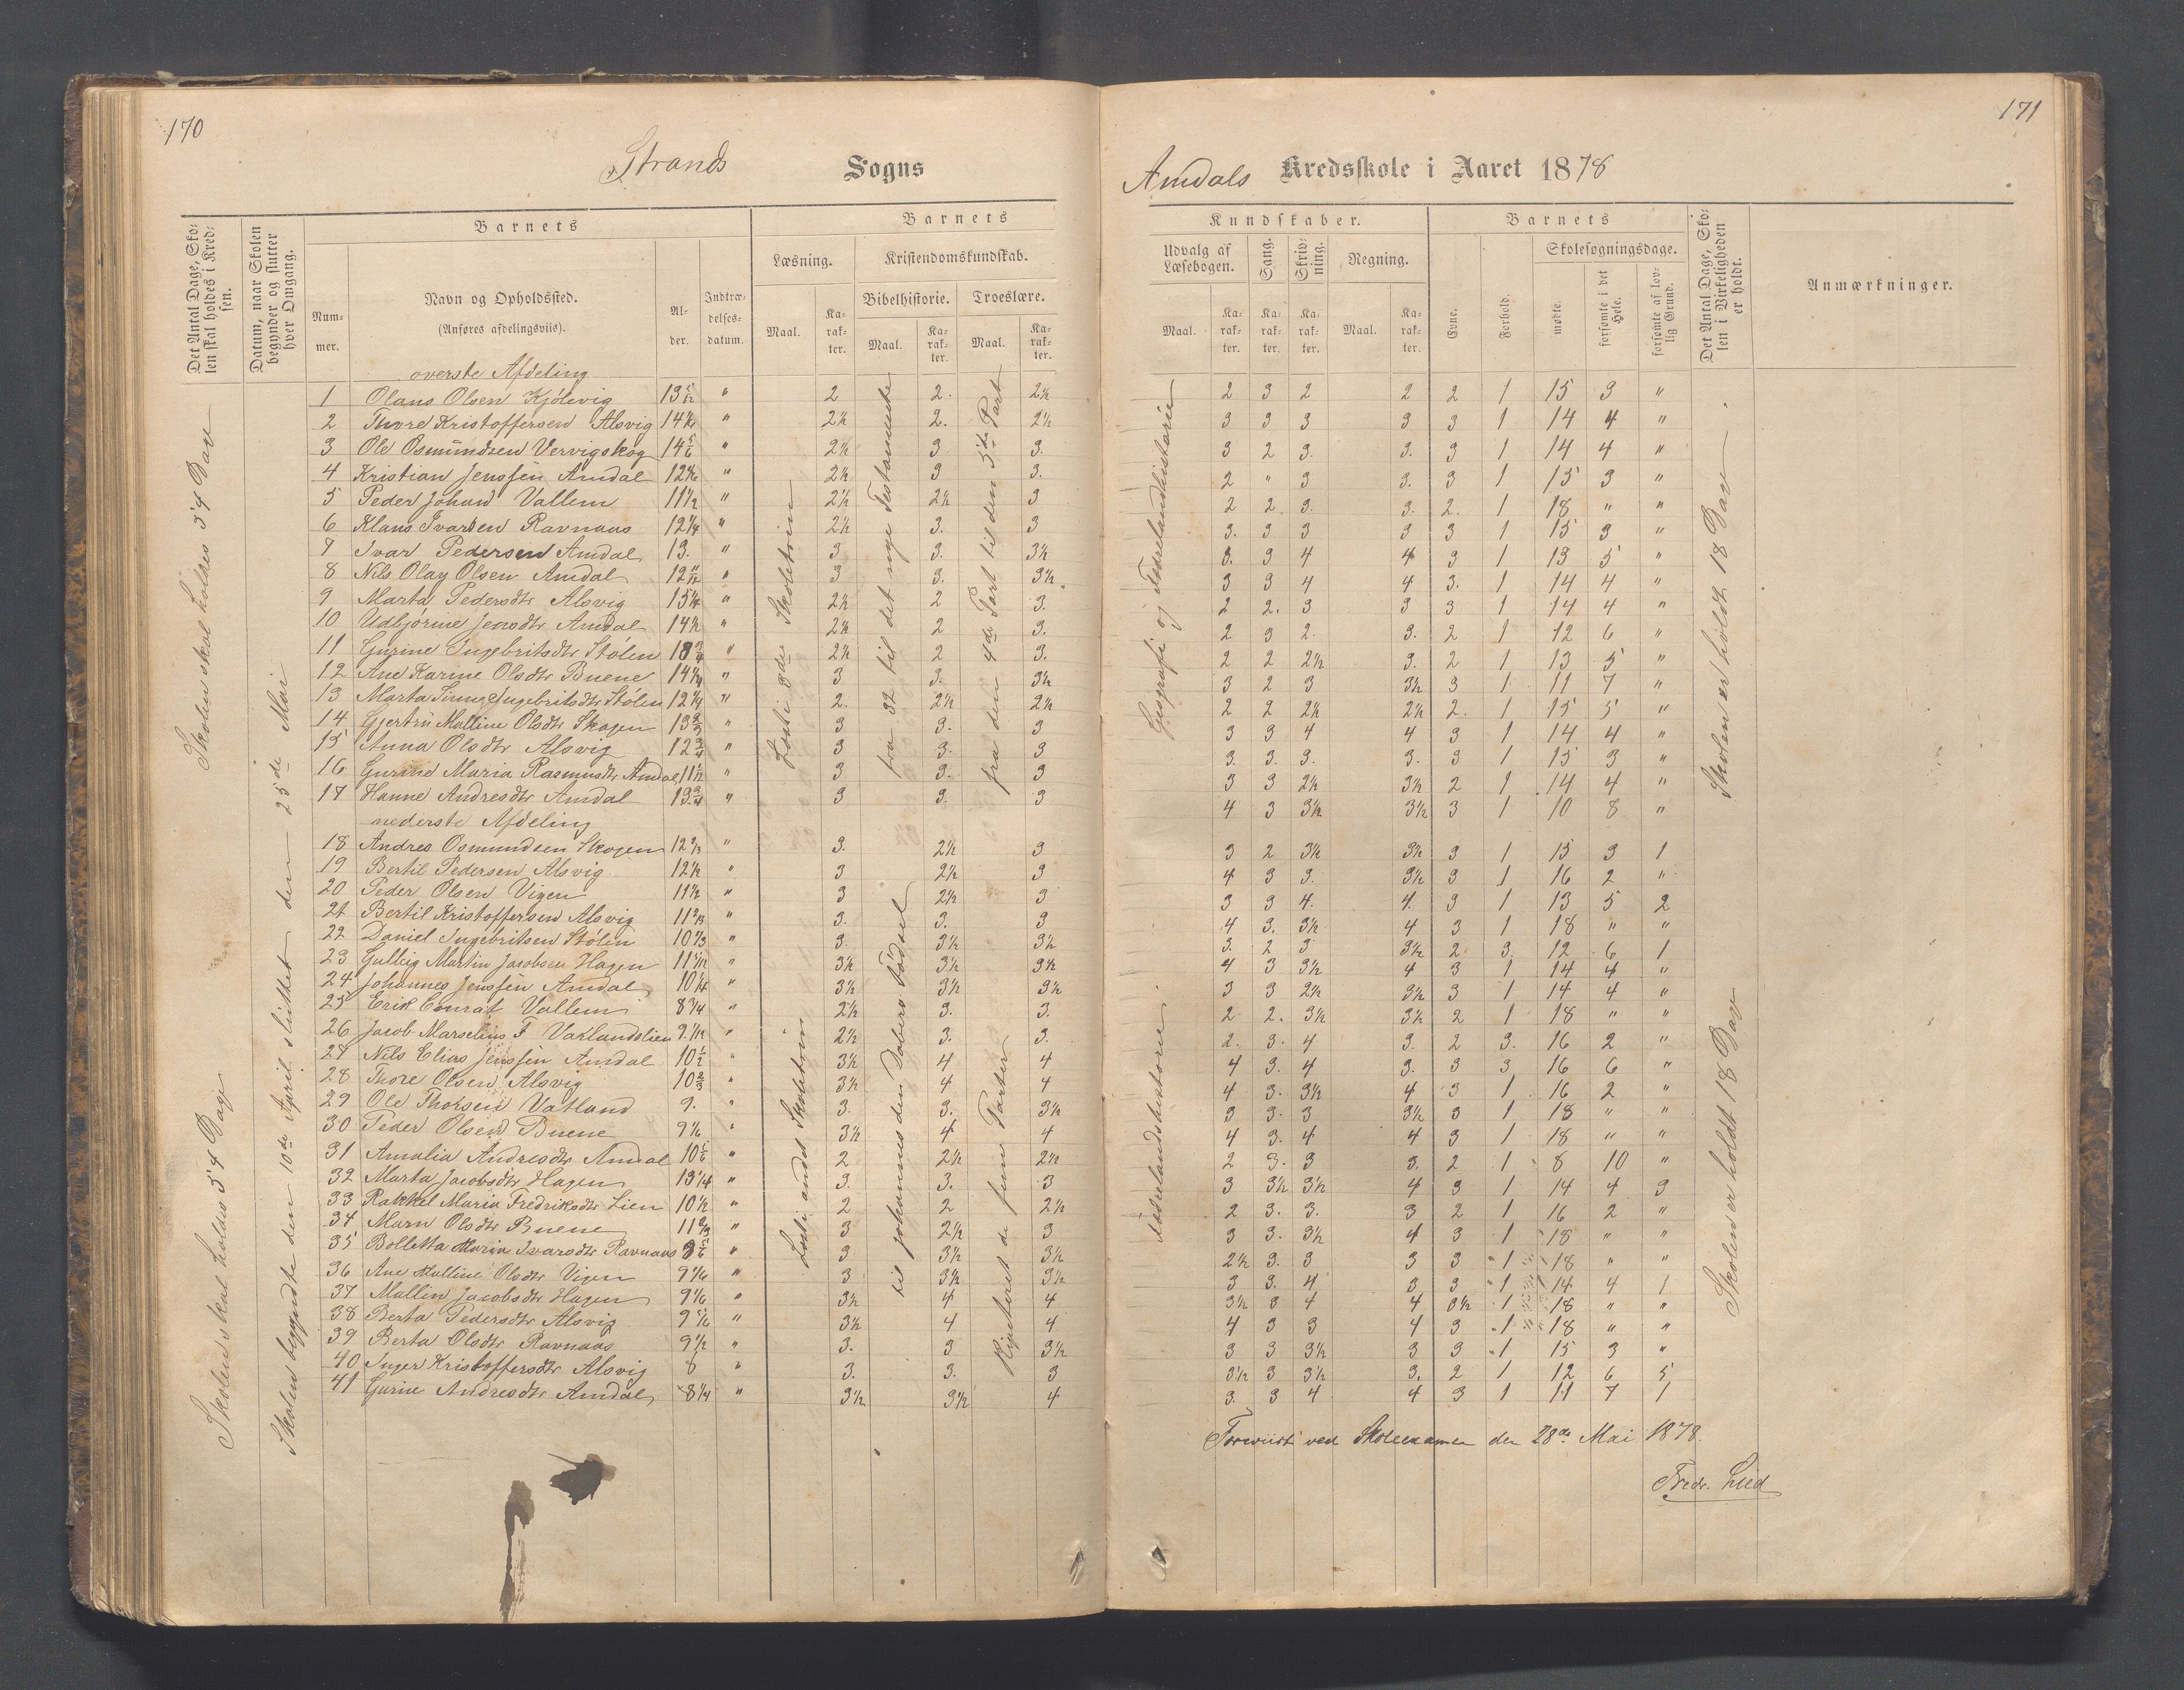 170
171
Strands Sogns
Amdals Kredsskole i Aaret 1878
Det Antal Dage, Skolen skal holdes i Kredsen.
Datum, naar Skolen begynder og slutter hver Omgang.
Barnets
Nummer.
Navn og Opholdssted.
(Anføres afdelingsviis).
Alder.
Indtrædelsesdatum.
Barnets
Læsning.
Kristendomskundskab.
Bibelhistorie.
Troeslære.
Maal.
Karakter.
Maal.
Karakter.
Maal.
Karakter.
Kundskaber.
Udvalg af Læsebogen.
Sang.
Skrivning.
Regning.
Maal.
Karakter.
Karakter.
Karakter.
Maal.
Karakter.
Barnets
Evne.
Forhold.
Skolesøgningsdage.
mødte.
forsømte i det Hele.
forsømte af lovlig Grund.
Det Antal Dage, Skolen i Virkeligheden er holdt.
Anmærkninger.
Skolen skal holdes 54 Dage
Skolen skal holdes 54 Dage
Skolen begyndte den 10de April sluttet den 25de Mai
Geografi og Fædrelandshistorie
Fædrelandshistorie
Skolen er holdt 18 Dage
Skolen er holdt 18 Dage
øverste Afdeling
1 Olaus Olsen Kjölevig 13 5/12 " 2 2. 2½ 2 3 2 2 2 1 15 3 "
2 Thore Kristoffersen Alsvig 2½ 2. 2½ 3 3 3 3 3 1 14 4 "
3 Ole Osmundsen Vervigskog 14 5/6 " 2½ 3 3. 3 2 3. 3. 3 1 14 4 "
4 Kristian Jenssen Amdal " 2½ 3 3. 2 " 3 3. 3 1 15 3 "
5 Peder Johan Vallem 11½ " 2½ 2½ 3 2 2 3. 3. 2. 1 18 " "
6 Klaus Ivarsen Ravnaas 12¼ " 2½ 3. 3 3. 3 3 3 3 1 15 3 "
7 Ivar Pedersen Amdal 13. " 3 3. 3½ 3. 3 4 4 3 1 13 5 "
8 Nils Olay Olsen Amdal 12 11/12 " 3 3. 3½ 3 3 4 4 3. 1 14 4 "
9 Marta Pedersdtr Alsvig 15¼ " 2½ 2 3. 2 2. 3 3 3 1 14 4 "
10 Udbjörine Jensdtr Amdal 14½ " 2½ 2 3. 2 3 2. 3. 2 1 12 6 "
11 Gurine Ingebritsdtr Stölen 13¾ " 2½ 2 3. 2 2 2½ 3. 2 1 13 5 "
12 Ane Karine Olsdtr Buene 14¼ " 3 3. 3½ 3 2 3 3½ 3 1 11 7 "
13 Marta Ingebritsdtr Stölen 12¼ " 2. 2½ 2½ 2 2 2½ 2½ 2. 1 15 5 "
14 Gjertru Malline Olsdtr Skogen 13⅔ " 3 3. 3 3 3 4 4 3 1 14 4 "
15 Anna Olsdtr Alsvig 12¾ " 3 3. 3 3. 3. 3. 3. 3 1 15 3 "
16 Gurine Maria Rasmusdtr Amdal 11½ " 3 3. 3 3 3 2½ 3½ 2 1 14 4 "
17 Hanne Andresdtr Amdal 13¾ " 3 3. 3 4 3 3½ 3½ 3 1 10 8 "
nederste Afdeling
18 Andres Osmundsen Skogen 12⅔ " 3. 2½ 3 3 2 3½ 3½ 3 1 15 3 1
19 Bertil Pedersen Alsvig 12½ " 3 2½ 3 4 3 3. 3½ 3 1 16 2 "
20 Peder Olsen Vigen 11½ " 3 2½ 3 3 3 4. 4. 3 1 13 5 2
21 Bertil Kristoffersen Alsvig 11⅔ " 3. 3. 3 4 3. 3½ 4 3 1 18 " "
22 Daniel Ingebritsen Stölen 10⅓ " 3. 3½ 3½ 3. 2 3 3½ 2 3. 12 6 1
23 Gulleig Martin Jacobsen Hagen " 3½ 3½ 3½ 4 3 3½ 4 3 1 14 4 "
24 Johannes Jenssen Amdal 10¼ " 3½ 3½ 3½ 3 3 2½ 3½ 3 1 14 4 "
25 Erik Conrat Vallem 8¾ " 2½ 3. 3. 2 2. 3½ 3½ 2 1 18 " "
26 Jacob Marselius F Vatlandslien " 2½ 3. 3. 2. 3. 4 3. 2 3. 16 2 "
27 Nils Elias Jenssen Amdal 10½ " 3½ 4 4 4 3. 4 3. 3 3 16 6 "
28 Thore Olsen Alsvig 10⅔ " 3½ 4 4 4 3. 3½ 4 3 1 16 2 "
29 Ole Thorsen Vatland 9. " 3. 3. 3½ 3 3. 3 3½ 3 1 18 " "
30 Peder Olsen Buene 9⅙ " 3½ 4 4 4 3. 4 4 3 1 18 " "
31 Amalia Andresdtr Amdal 10⅚ " 2 2½ 2½ 2 3. 3 3. 2 1 8 10 "
32 Marta Jacobsdtr Hagen 13¼ " 3. 3. 3 3 3½ 3½ 4 3 1 14 4 3
33 Rakkel Maria Fredriksdtr Lien 10½ " 2 2 2½ 2 3. 3. 3 2 1 16 2 "
34 Marn Olsdtr Buene 11⅔ " 3 2½ 3 3 3. 3½ 4 3 1 18 " "
35 Bolletta Maria Ivarsdtr Ravnaas " 3 3½ 3½ 2½ 3. 3 3 3 1 18 " "
36 Ane Malline Olsdtr Vigen 9⅙ " 3 3½ 3½ 3 3. 4 3 3 1 14 4 1
37 Mallen Jacobsdtr Hagen 9⅙ " 3½ 4 4 3½ 3 4 4 3½ 1 18 " "
38 Berta Pedersdtr Alsvig 9⅚ " 3½ 4 4 4 3 3 4 3 1 18 " "
39 Berta Olsdtr Ravnaas 9½ " 3. 3 3½ 3 3 3½ 3 3 1 15 3 "
40 Inger Kristoffersdtr Alsvig 8 " 3. 3. 3 3½ 3 3½ 3. 2 1 12 6 5
41 Gurine Andresdtr Amdal 8¼ " 3½ 3½ 4 3. 3 4 4 3 1 11 7 1
Læsti 3die Skoletrin
fra 32 til det nye Testamente
fra den 4de Part til den 5te Part
Læsti andet Skoletrin
til Johannes den Döbers Födsel
Repeteret de fem Parter
Foreviist ved Skoleexamen den 28de Mai 1878.
Fredr. Lied